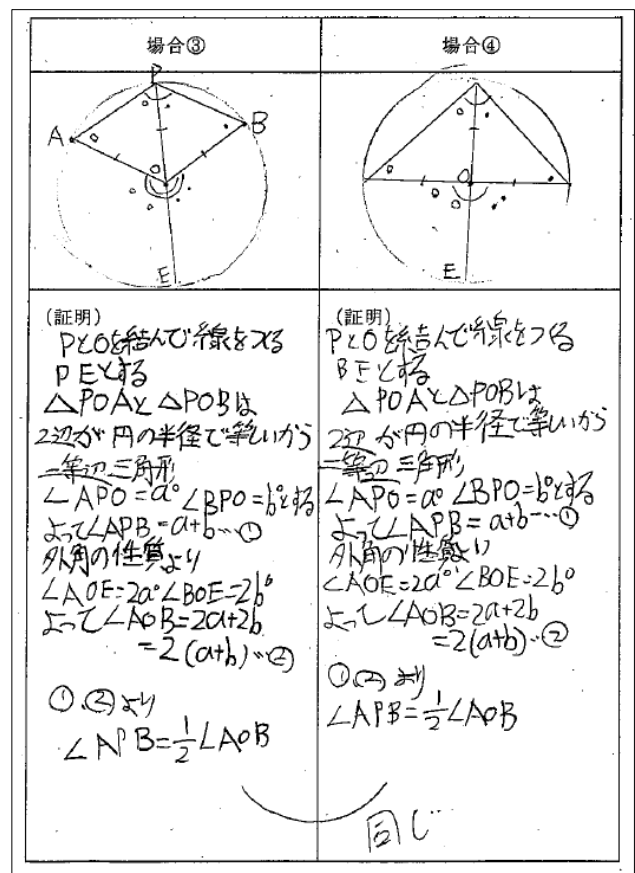 場合③
P
A
B
O
E
(証明)
PとOを結んで線をつくる
PEとする
△POAと△POBは
2辺が円の半径で等しいから
二等辺三角形
∠APO=a° ∠BPO=b°とする
よって∠APB=a+b…①
外角の性質より
∠AOE=2a° ∠BOE=2b°
よって∠AOB=2a+2b
=2(a+b)…②
①、②より
∠APB=1/2∠AOB
場合④
O
E
(証明)
PとOを結んで線をつくる
Eとする
△POAと△POBは
2辺が円の半径で等しいから
二等辺三角形
∠APO=a° ∠BPO=b°とする
よって∠APB=a+b…①
外角の性質より
∠AOE=2a° ∠BOE=2b°
よって∠AOB=2a+2b
=2(a+b)…②
①、②より
∠APB=1/2∠AOB
同じ